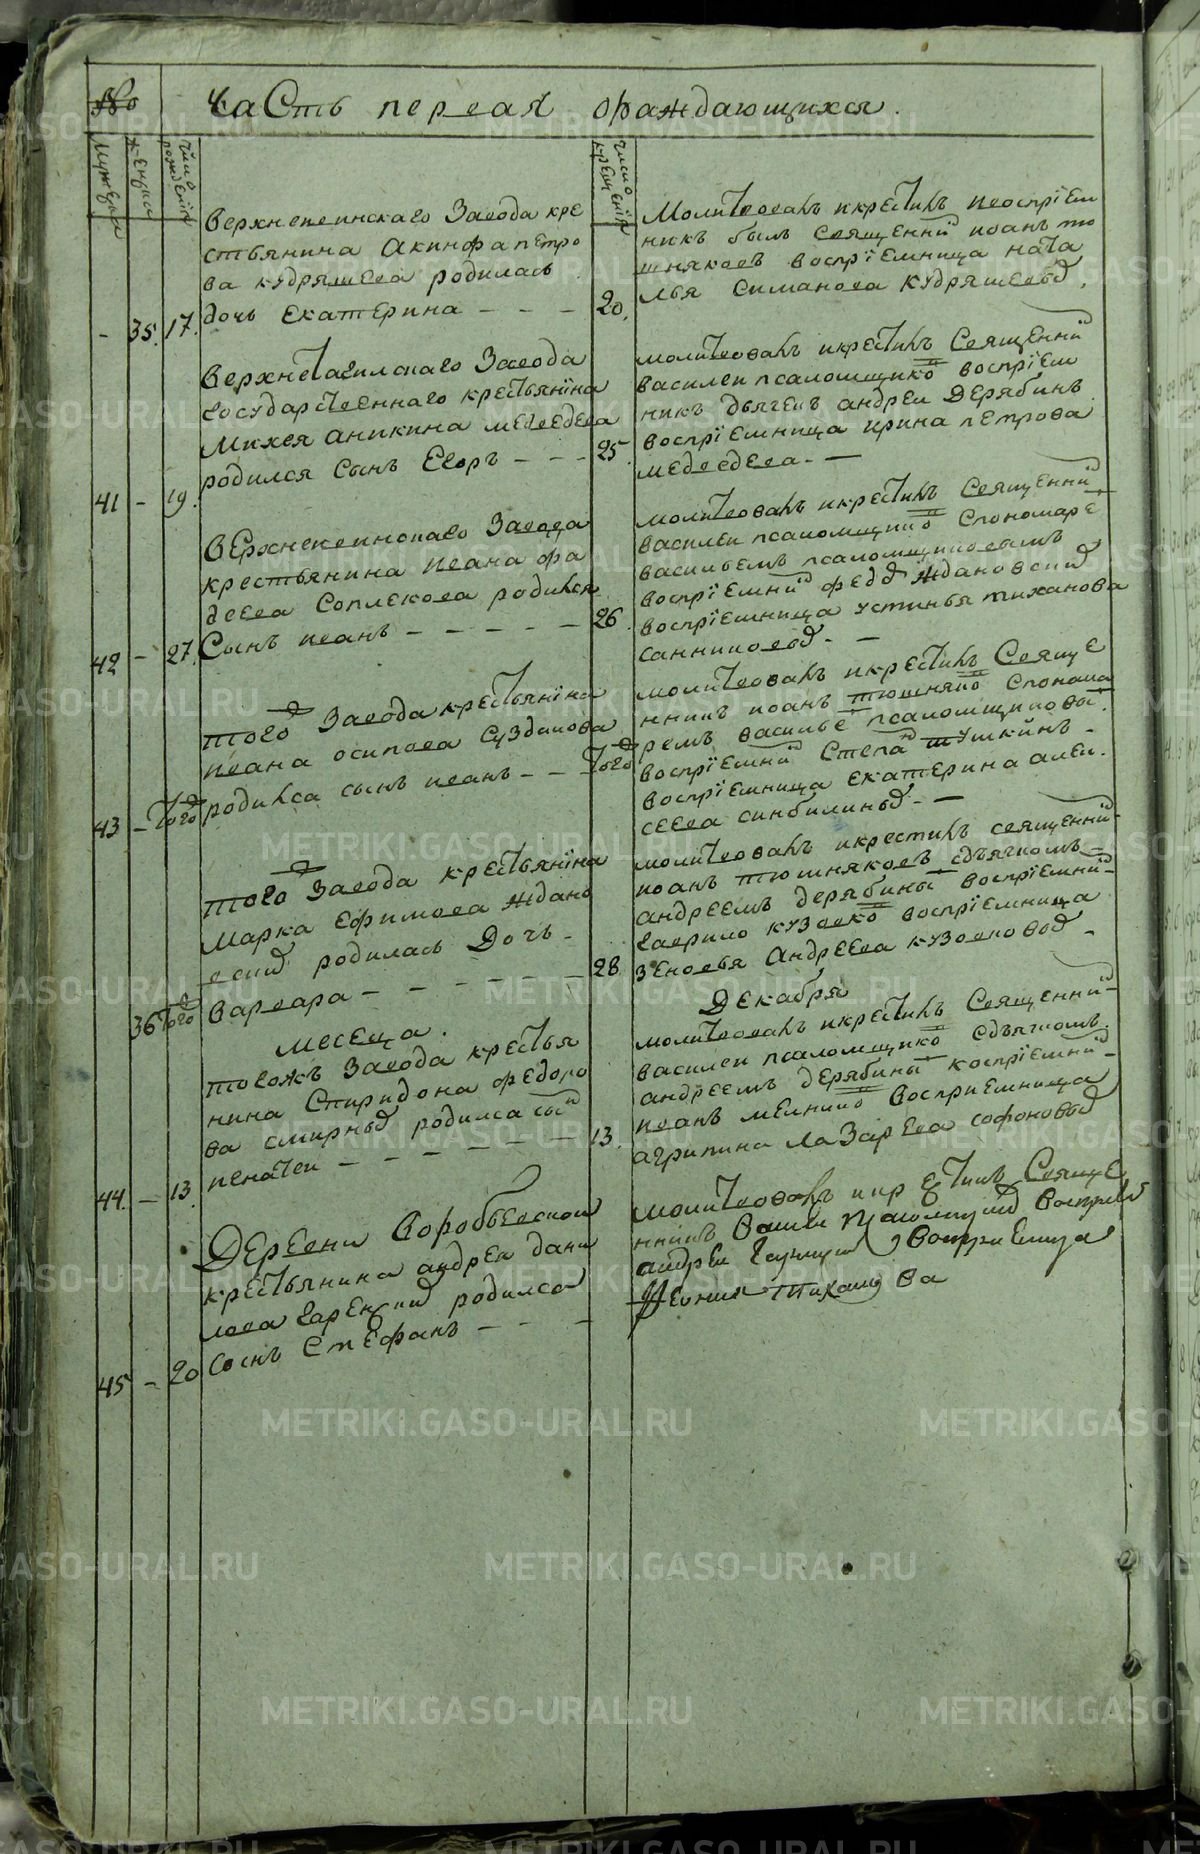 №
Часть первая ораждающихся.
мужеска
женска
число рожденія
число крещенія
Верхнепеинскаго Завода кре
стьянина Акинфа петро
ва кудряшева родилась
дочь Екатерина
- 35. 17.
20.
Молитвовалъ икрестилъ Ивоспріем
никъ былъ священни иоанъ тю
шняковъ воспріемница ната
лья симанова Кудряшевы.
Верхнетагилскаго Завода
государственнаго крестьянина
Михея аникина медведева
родился сынъ Егоръ
41 - 19.
25.
молитвовалъ икрестилъ Священни
василеи псаломщико воспріем
никъ дьячекъ андреи Дерябинъ
воспріемница ирина петрова
медведева.
Верхнепеинскаго Завода
крестьянина ивана фа
деева Соплекова родился
Сынъ иванъ
42 - 27.
26.
молитвовалъ икрестилъ Священни
василеи псаломщико спономаре
васильемъ псаломщиковымъ
воспріемни федо Ждановски
воспріемница устинья тиханова
санниковы.
того Завода крестьянина
ивана осипова Суздалова
родился сынъ иванъ
43 - того
того
молитвовалъ икрестилъ Свяще
нникъ иоанъ тюшняко спонома
ремъ василье псаломщиковы.
воспріемни Степа тушкинъ
воспріемница екатерина алек
сеева синбилины.
того Завода крестьянина
Марка Ефимова Ждано
вски родилась Дочь
Варвара
36 того
28
молитвовалъ икрестилъ священни
иоанъ тюшняковъ сдьячкомъ
андреемъ дерябины воспріемни
гаврило кузовко воспріемница
зеновья Андреева кузовковы
месеца.
Декабря
тогожъ Завода крестья
нина Спиридона федоро
ва смирны родился сы
игнатеи
44. - 13.
13.
молитвовалъ икрестилъ Священни
василеи псаломщико сдьячкомъ
андреемъ дерябины воспріемни
иванъ мелнико Восприемница
агрипина лазарева софоновы
Деревни Воробьевскои
крестьянина андрея дани
лова родился
Сынъ Стефанъ
45 - 20
молитвовалъ икрестилъ Свяще
нникъ Василеи
андреи восприемница